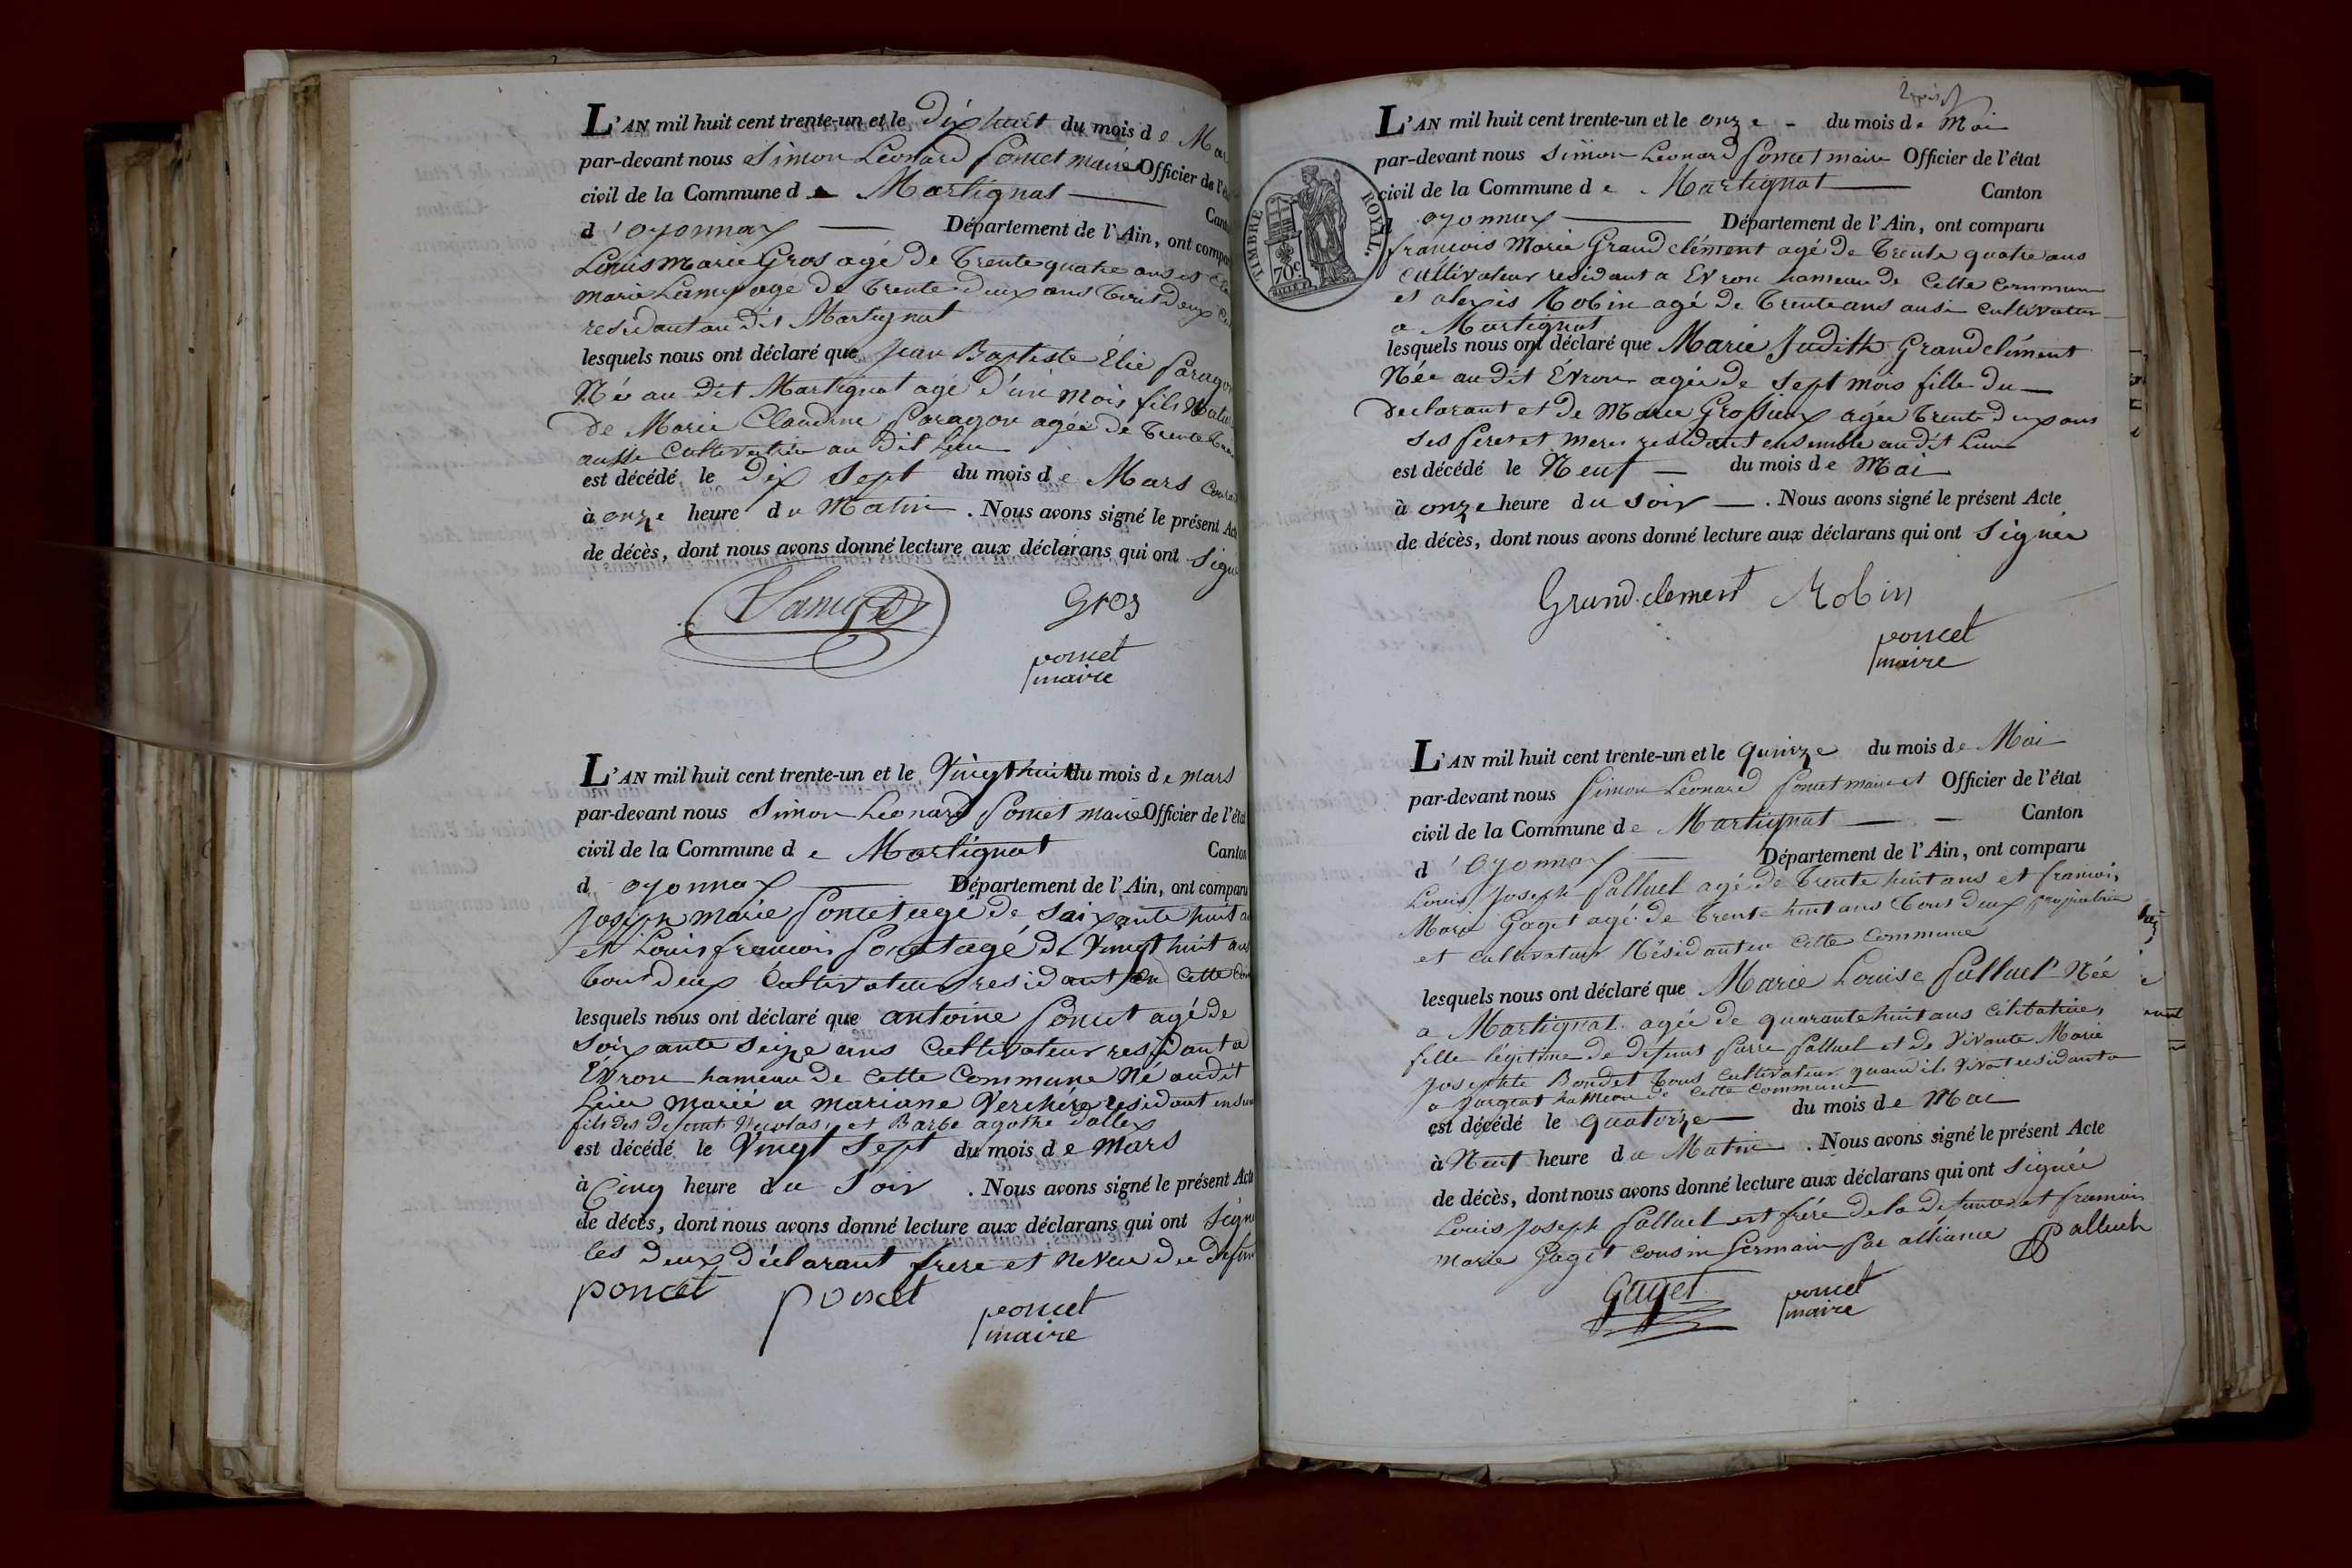 L'AN mil huit cent trente-un et le Dix huit du mois de Mar
par-devant nous Simon Leonard Poncet maire Officier de l'é
civil de la Commune de Martignat Cant
d'oyonnax Département de l'Ain, ont compar
Louis marie Gros agé de Trente quatre ans et
marie Lamy age de Trente deux ans tout deux
residant au dit Martignat
lesquels nous ont déclaré que Jean Baptiste Élie Paragon
Né au dit Martignat agé d'un mois fils Natu
De Marie Claudine Paragon agée de Trente
aussi Cultivatrice au Dit Lieu
est décédé le Dix Sept du mois de Mars Coura
à onze heure du Matin . Nous avons signé le présent Act
de décès, dont nous avons donné lecture aux déclarans qui ont Signé
Gros
poncet
maire
L'AN mil huit cent trente-un et le Vingt huit du mois de mars
par-devant nous Simon Leonard Poncet maire Officier de l'état
civil de la Commune de Martignat Canton
d oyonnax Département de l'Ain, ont comparu
Joseph marie Poncet agé de Soixante huit a
et Louis francois Poncet agé de Vingt huit ans
tout deux Cultivateur residant en cette com
lesquels nous ont déclaré que antoine Poncet agé de
Soixante Seize ans Cultivateur residant a
Évron hameau de cette Commune Né audit
Lieu marié a mariane Verchére residant ensem
fils des defunt Nicolas, et Barbe agathe dallex
est décédé le Vingt Sept du mois de Mars
à Cinq heure du Soir . Nous avons signé le présent Acte
de décès, dont nous avons donné lecture aux déclarans qui ont Signé
les deux déclarant frere et Neveu du defun
poncet poncet poncet
maire
L'AN mil huit cent trente-un et le onze du mois de Mai
par-devant nous Simon Leonard Poncet maire Officier de l'état
civil de la Commune de Martignat Canton
d oyonnax Département de l'Ain, ont comparu
TIMBRE ROYAL.
70c.
françois Marie Grandclément agé de Trente quatre ans
cultivateur residant a Evron hameau de Cette Commune
et alexis Robin agé de Trente ans ausi cultivateur
a Martignat
lesquels nous ont déclaré que Marie Judith Grandclément
Née au dit Évron agée de Sept mois fille du
declarant et de Marie Grossiord agée trente deux ans
Ses peres et meres residant ensemble au dit Lieu
est décédé le Neuf du mois de Mai
à onze heure du Soir . Nous avons signé le présent Acte
de décès, dont nous avons donné lecture aux déclarans qui ont Signée
Grandclement Robin
poncet
maire
L'AN mil huit cent trente-un et le quinze du mois de Mai
par-devant nous Simon Leonard Poncet maire et Officier de l'état
civil de la Commune de Martignat Canton
d'oyonnax Département de l'Ain, ont comparu
Louis Joseph Palluel agé de Trente huit ans et francois
Marie Gaget agé de Trente huit ans tout deux proprietaire
et cultivateur Résidant en cette Commune
lesquels nous ont déclaré que Marie Louise Palluel Née
a Martignat agée de quarante huit ans célibataire,
fille légitime de defunt Pierre Palluel et de Vivante Marie
Josephte Bondet tous cultivateur quand ils Vivoit residant a
a Jargeat hameau de cette Commune
est décédé le quatorze du mois de Mai
à Neuf heure du Matin . Nous avons signé le présent Acte
de décès, dont nous avons donné lecture aux déclarans qui ont signée
Louis Joseph Palluel est frére de la defunte et francois
Marie Gaget cousin Germain par alliance
Gaget poncet
maire